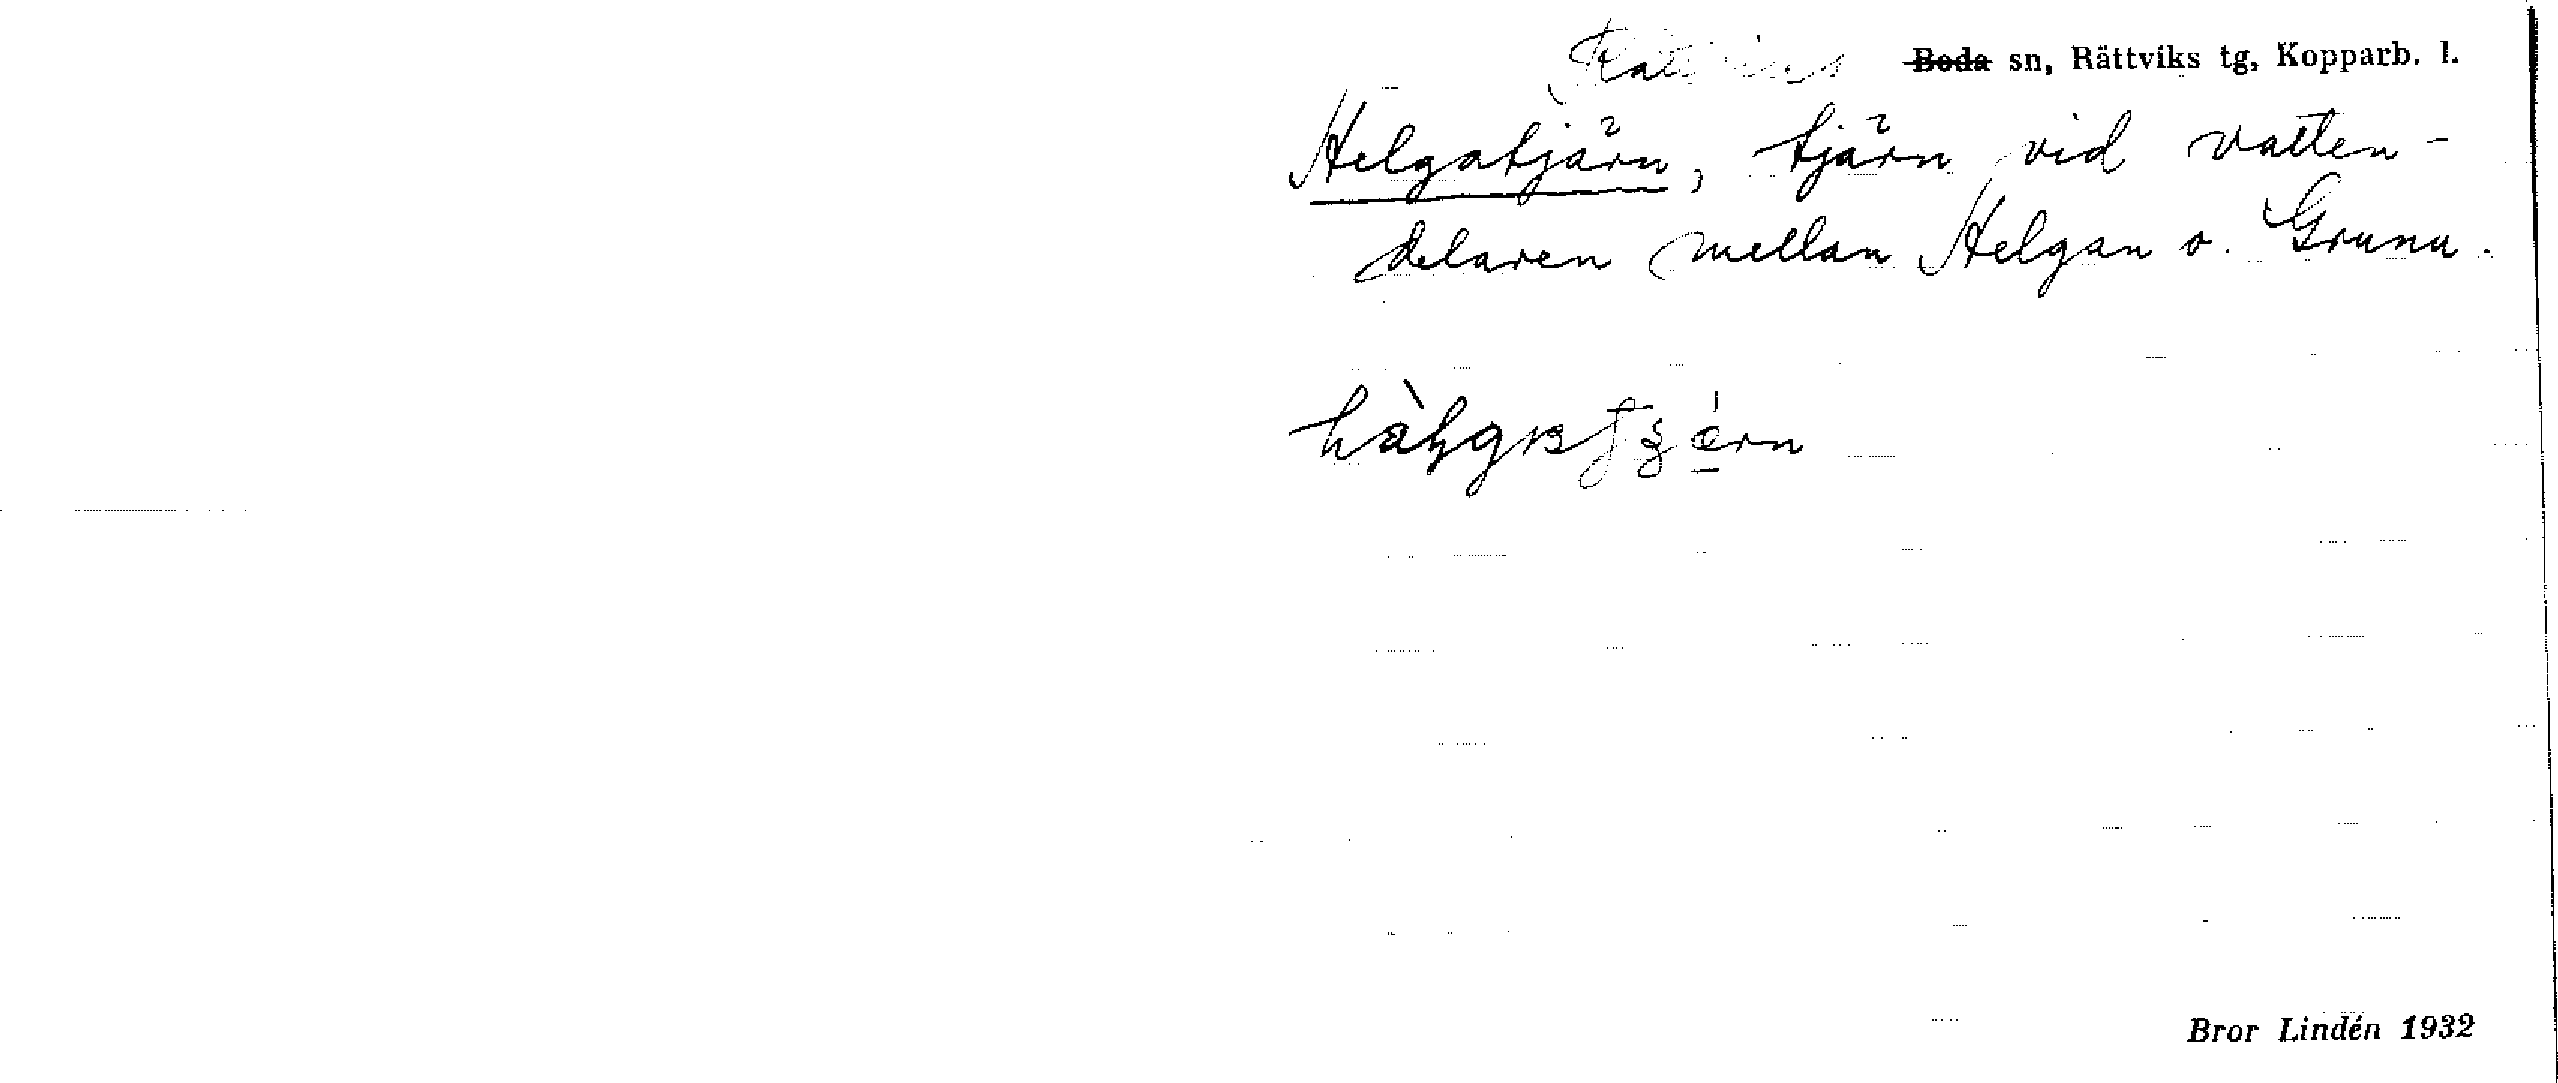 Rättviks Boda sn, Rättviks tg, Kopparb. l.
Helgatjärn, tjärn vid vatten-
delaren mellan Helgan o. Grunu.
Bror Lindén 1932